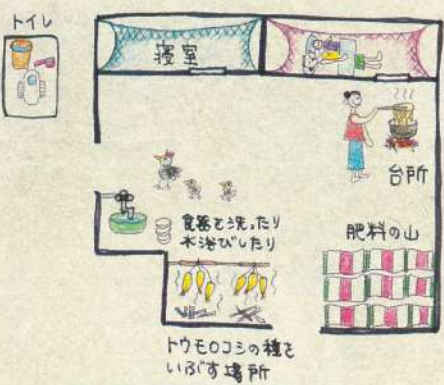 トイレ
寝室
台所
食器を洗ったり
水浴びしたり
肥料の山
トウモロコシの種を
いぶす場所